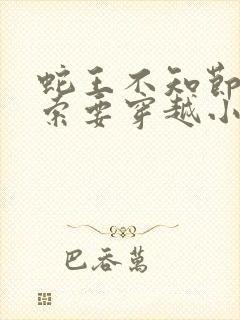 蛇王不知節
索要穿越小
巴吞萬